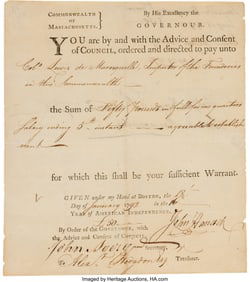 COMMONWEALTH OF MASSACHUSETTS.
By His Excellency the
GOVERNOUR.
YOU are by and with the Advice and Consent
of COUNCIL, ordered and directed to pay unto
Col. Lewis de Inspector of the Foundries
in this Commonwealth
the Sum of Fifty Pounds in full for
Salary ending 5th instant agreeable to establish
ment
for which this shall be your sufficient Warrant.
GIVEN under my Hand at BOSTON, the
Day of January 178 in the
YEAR of AMERICAN INDEPENDENCE.
By Order of the GOVERNOUR, with
the Advice and Consent of COUNCIL,
John Hancock
John Avery Secretary.
To Treasurer.
Imaged by Heritage Auctions, HA.com